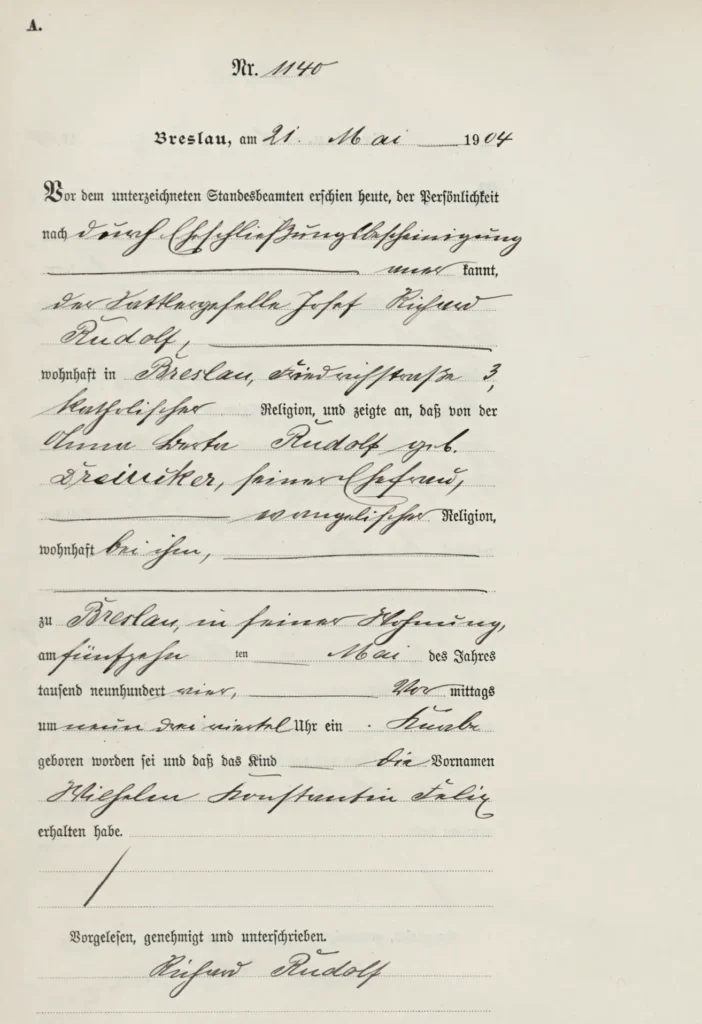 A.
Nr. 1140
Breslau, am 21. Mai 1904
Vor dem unterzeichneten Standesbeamten erschien heute, der Persönlichkeit
nach durch Eheschließungsbescheinigung
anerkannt,
der Sattlergeselle Josef Richard
Rudolf,
wohnhaft in Breslau, Friedrichstraße 3,
katholischer Religion, und zeigte an, daß von der
Anna Berta Rudolf geb.
seiner Ehefrau,
evangelischer Religion,
wohnhaft bei ihm,
zu Breslau, in seiner Wohnung,
am fünfzehn ten Mai des Jahres
tausend neunhundert vier, Vor mittags
um neun drei viertel Uhr ein Knabe
geboren worden sei und daß das Kind die Vornamen
Wilhelm Konstantin Felix
erhalten habe.
Vorgelesen, genehmigt und unterschrieben.
Richard Rudolf